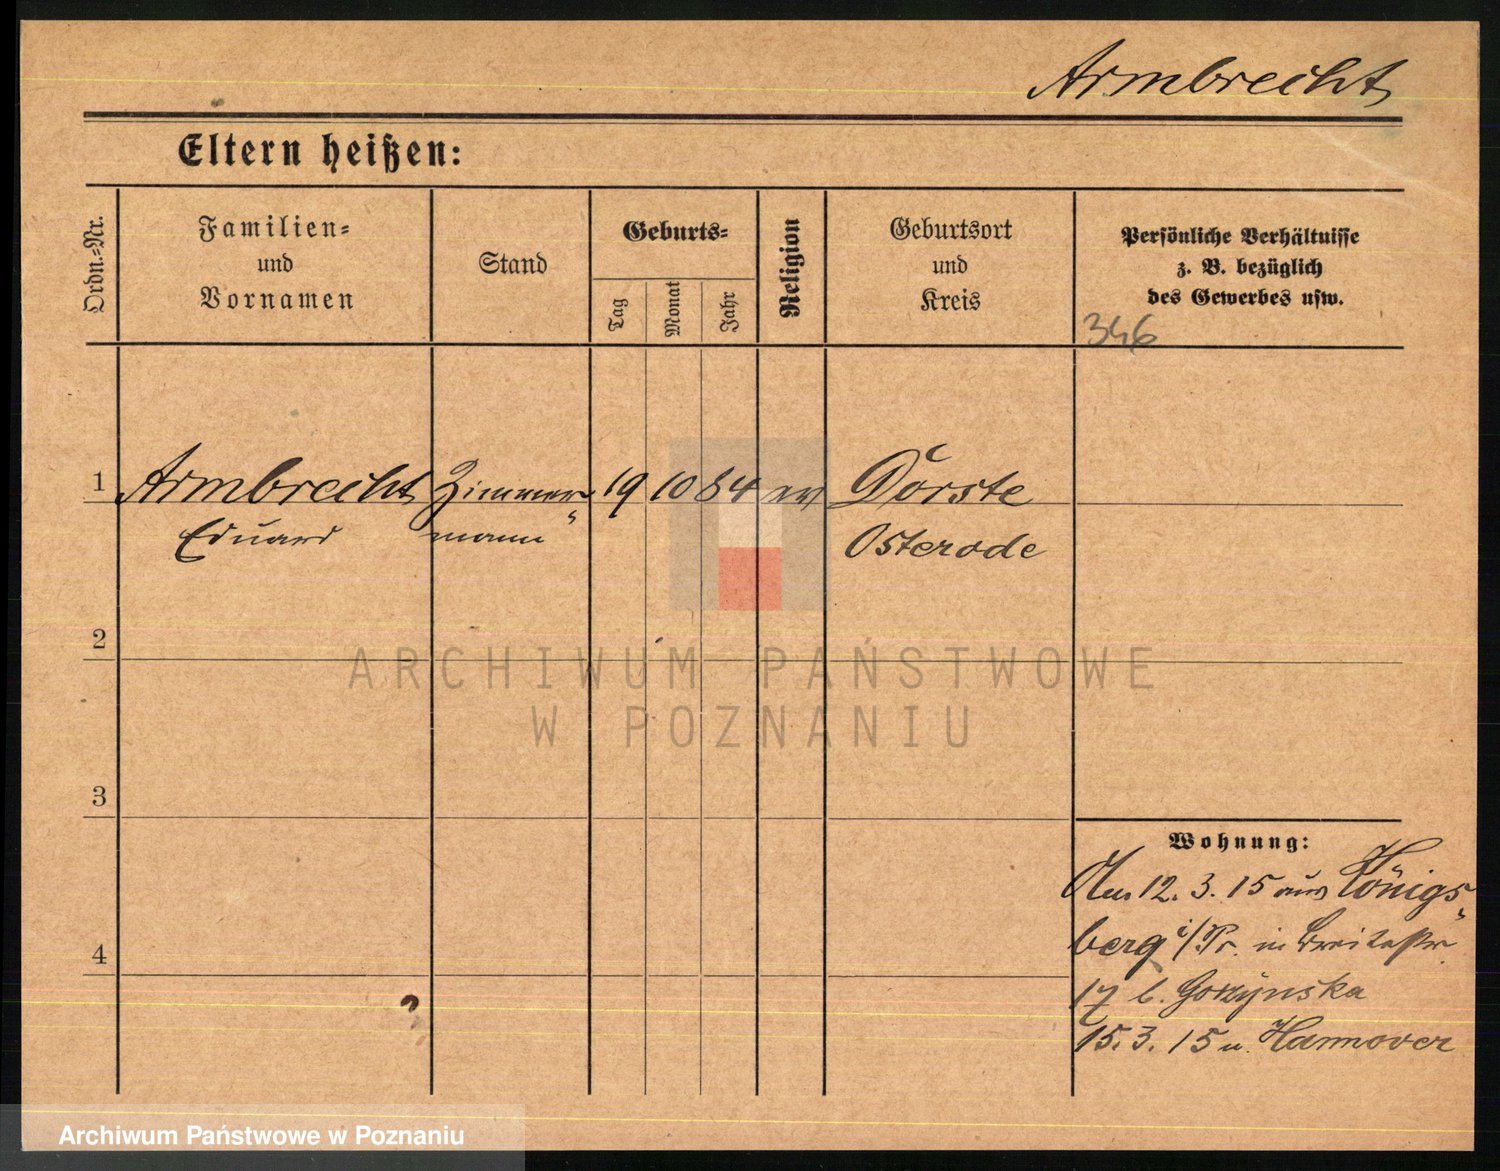 Armbrecht
Eltern heißen:
Ordn.-Nr.
Familien-
und
Vornamen
Stand
Geburts-
Tag
Monat
Jahr
Religion
Geburtsort
und
Kreis
Persönliche Verhältnisse
z. B. bezüglich
des Gewerbes usw.
346
1 Armbrecht Zimmer- 19 10 84 ev Dorste
Eduard mann Osterode
2
ARCHIWUM PAŃSTWOWE
W POZNANIU
3
Wohnung:
12. 3. 15 aus Königs-
4
berg i/Pr. in Breitestr.
17 b. Gorzynska
15. 3. 15 n. Hannover
Archiwum Państwowe w Poznaniu